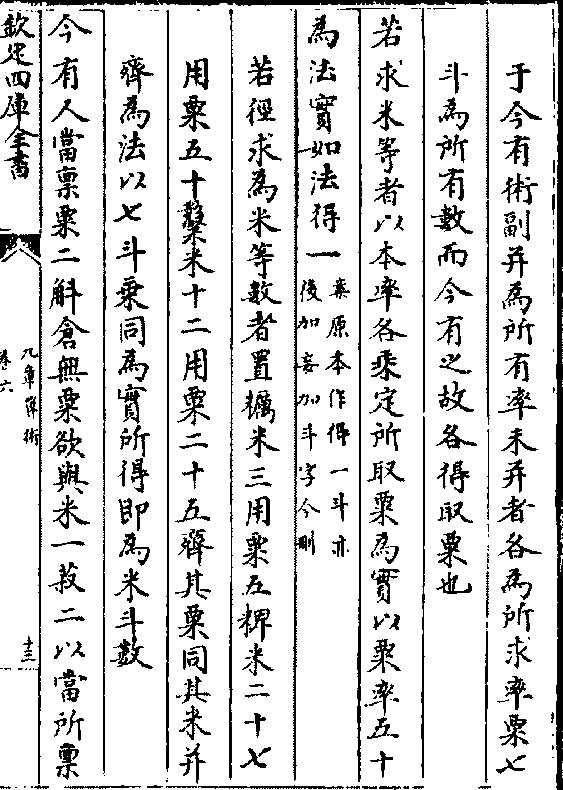 于今有術副并為所有率未并者各為所求率粟七
斗為所有數而今有之故各得取粟也
若求米等者以本率各乘定所取粟為實以粟率五十
為法實如法得一案原本作得一斗亦
後加妄加斗字今刪
若徑求為米等數者置糲米三用粟五粺米二十七
用粟五十糳米十二用粟二十五齊其粟同其米并
齊為法以七斗乘同為實所得即為米斗數
今有人當稟粟二斛倉無粟欲與米一菽二以當所稟
欽定四庫全書
九章算術
卷六
十三